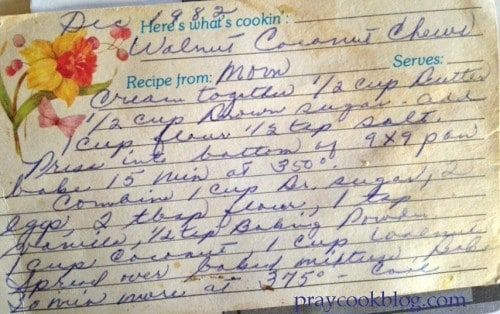 Dec 1982
Here's what's cookin':
Walnut Coconut Chews
Recipe from: Mom Serves:
Cream together 1/2 cup Butter
1/2 cup Brown sugar. add
1 cup flour 1/2 tsp salt.
Press into bottom of 9x9 pan
bake 15 min at 350°.
Combine 1 cup Br. sugar, 2
eggs, 2 tbsp flour, 1 tsp
Vanilla, 1/2 tsp Baking Powder
1 cup Coconut 1 cup walnuts
Spread over baked mixture. Bake
min more at 375° - Cool
praycookblog.com